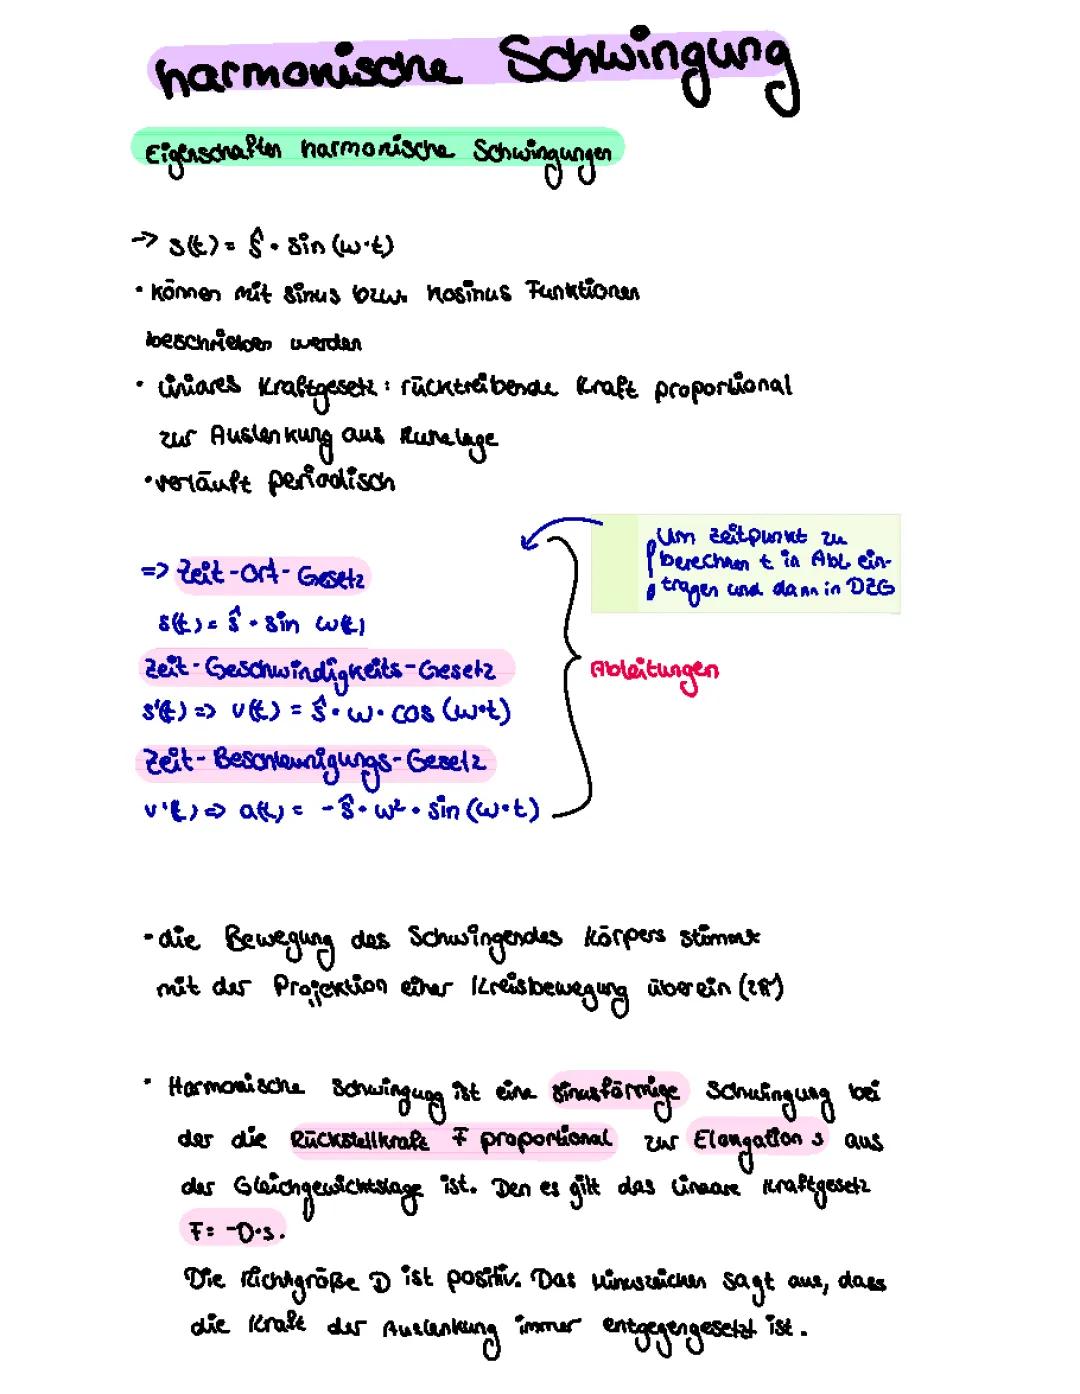 harmonische Schwingung
Eigenschaften harmonische Schwingungen
-> s(t) = ŝ · sin (ω·t)
· können mit sinus bzw. Kosinus Funktionen
beschrieben werden
· Liniares Kraftgesetz: rücktreibende Kraft proportional
zur Auslenkung aus Ruhelage
· verläuft periodisch
Um zeitpunkt zu
berechnen t in Abl. ein-
tragen und dann in DZG
=> Zeit-Ort-Gesetz
s(t) = ŝ · sin ω(t)
Zeit-Geschwindigkeits-Gesetz
s'(t) => v(t) = ŝ · ω · cos (ω·t)
Ableitungen
Zeit-Beschleunigungs-Gesetz
v'(t) => a(t) = -ŝ · ω² · sin (ω·t)
- die Bewegung des Schwingendes Körpers stimmt
mit der Projektion einer Kreisbewegung überein
· Harmonische Schwingung ist eine sinusförmige Schwingung bei
der die Rückstellkraft F proportional zur Elongation s aus
der Gleichgewichtslage ist. Den es gilt das lineare Kraftgesetz
F = -D·s.
Die Richtgröße D ist positiv. Das Minuszeichen sagt aus, dass
die Kraft der Auslenkung immer entgegengesetzt ist.